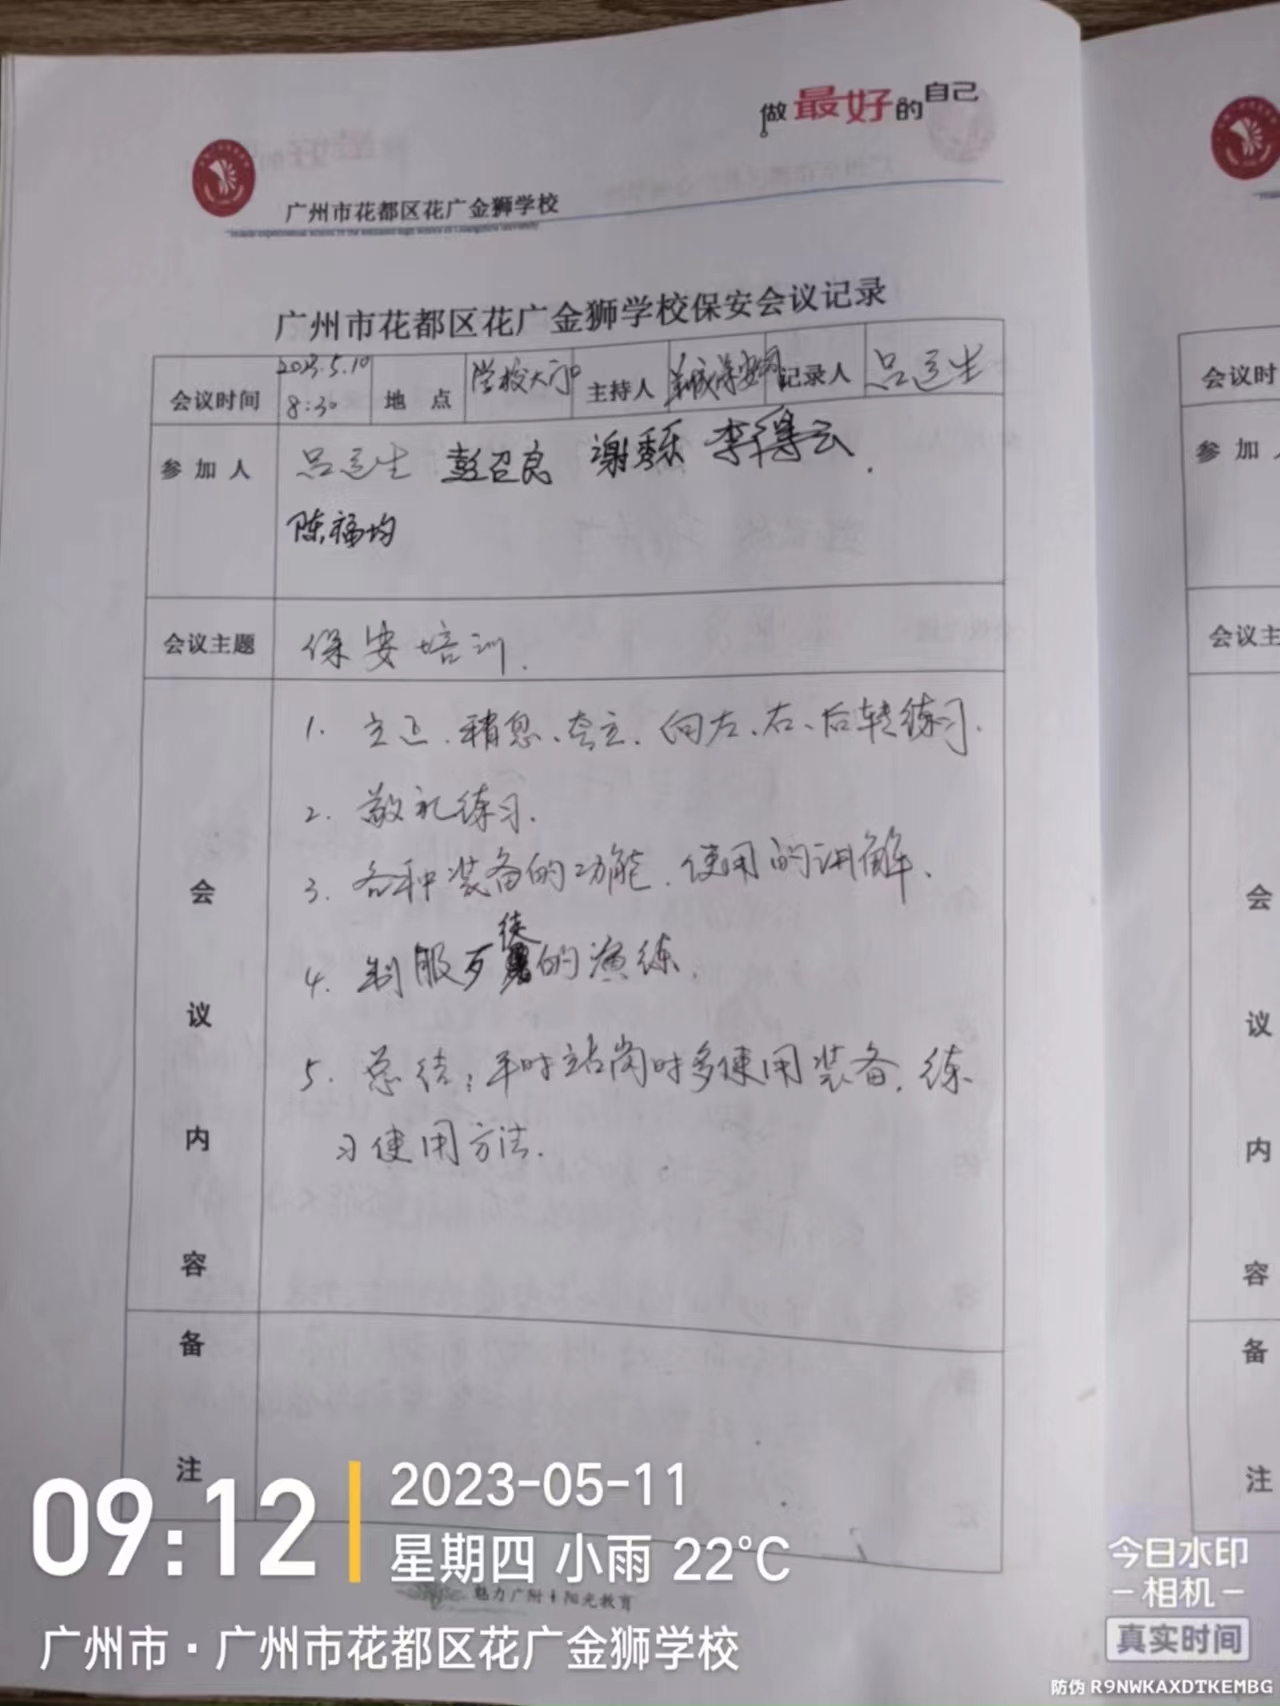 做最好的自己
广州市花都区花广金狮学校
广州市花都区花广金狮学校保安会议记录
会议时间 2023.5.10 8:30 地 点 学校大门口 主持人 记录人 吕运生
参加人 吕运生 彭召良 谢秀乐 李得云.
陈福均
会议主题 保安培训.
1. 立正、稍息、夸立、向左、右、后转练习.
2. 敬礼练习.
3. 各种装备的功能、使用的讲解.
4. 制服歹徒的演练.
5. 总结:平时站岗时多使用装备,练
习使用方法.
会议内容
备注
魅力广附 阳光教育
会议时
参加
会议主
会议内容
备注
09:12
2023-05-11
星期四 小雨 22°C
广州市·广州市花都区花广金狮学校
今日水印
相机
真实时间
防伪 R9NWKAXDTKEMBG